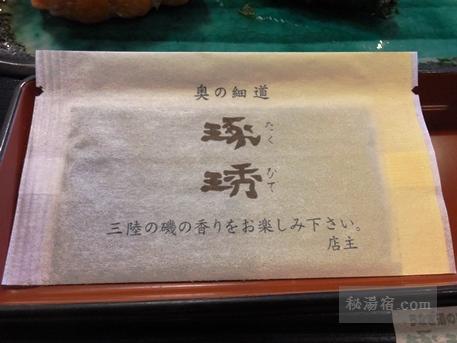 奥の細道
琢琇
たくひで
三陸の磯の香りをお楽しみ下さい。
店主
秘湯宿.com